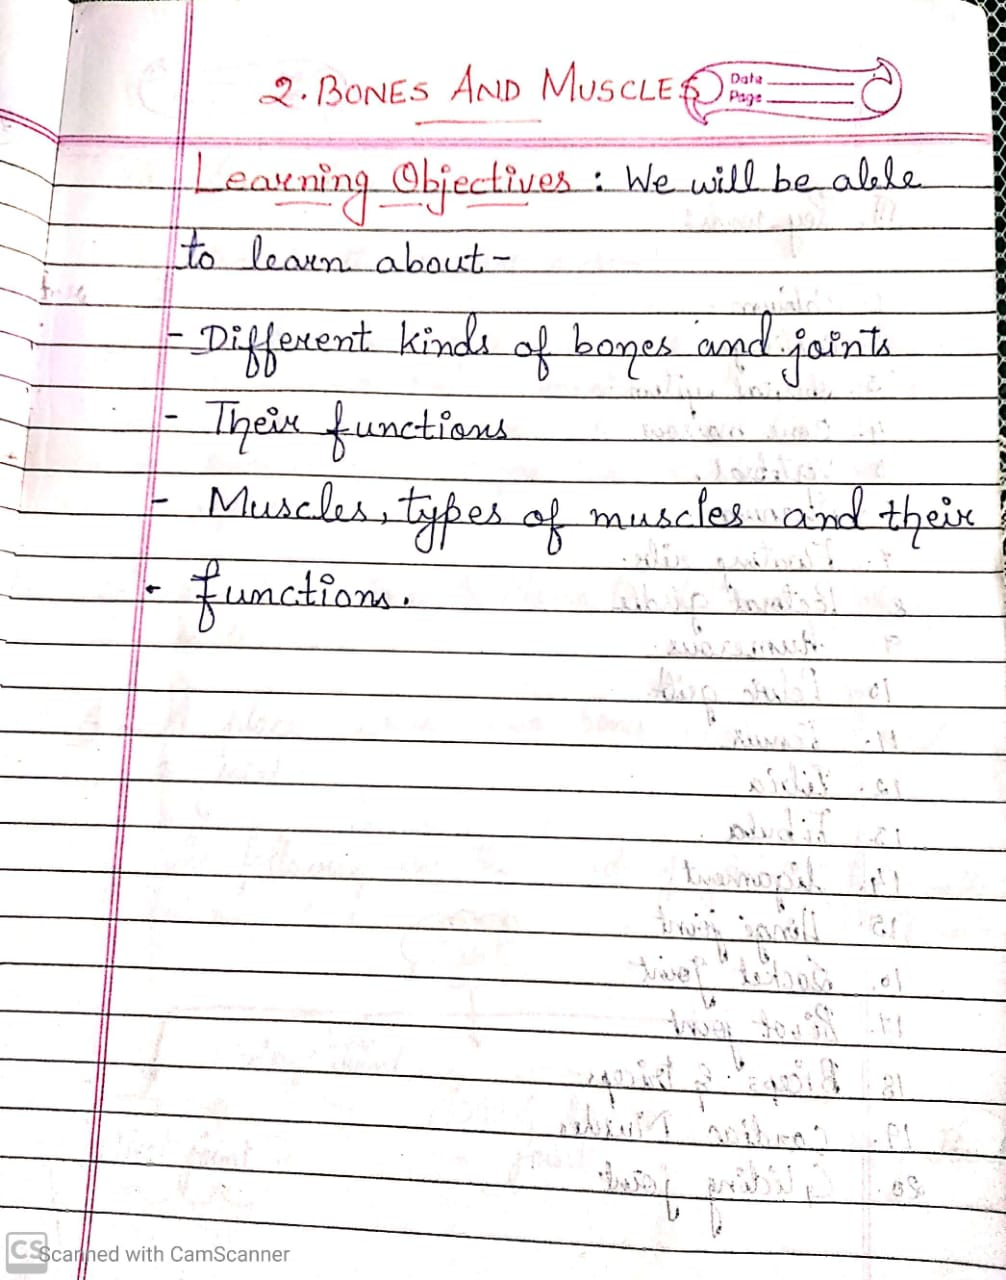 2. BONES AND MUSCLES
Date
Page
Learning Objectives : We will be able
to learn about-
- Different kinds of bones and joints
- Their functions
- Muscles, types of muscles and their
- functions.
CS Scanned with CamScanner